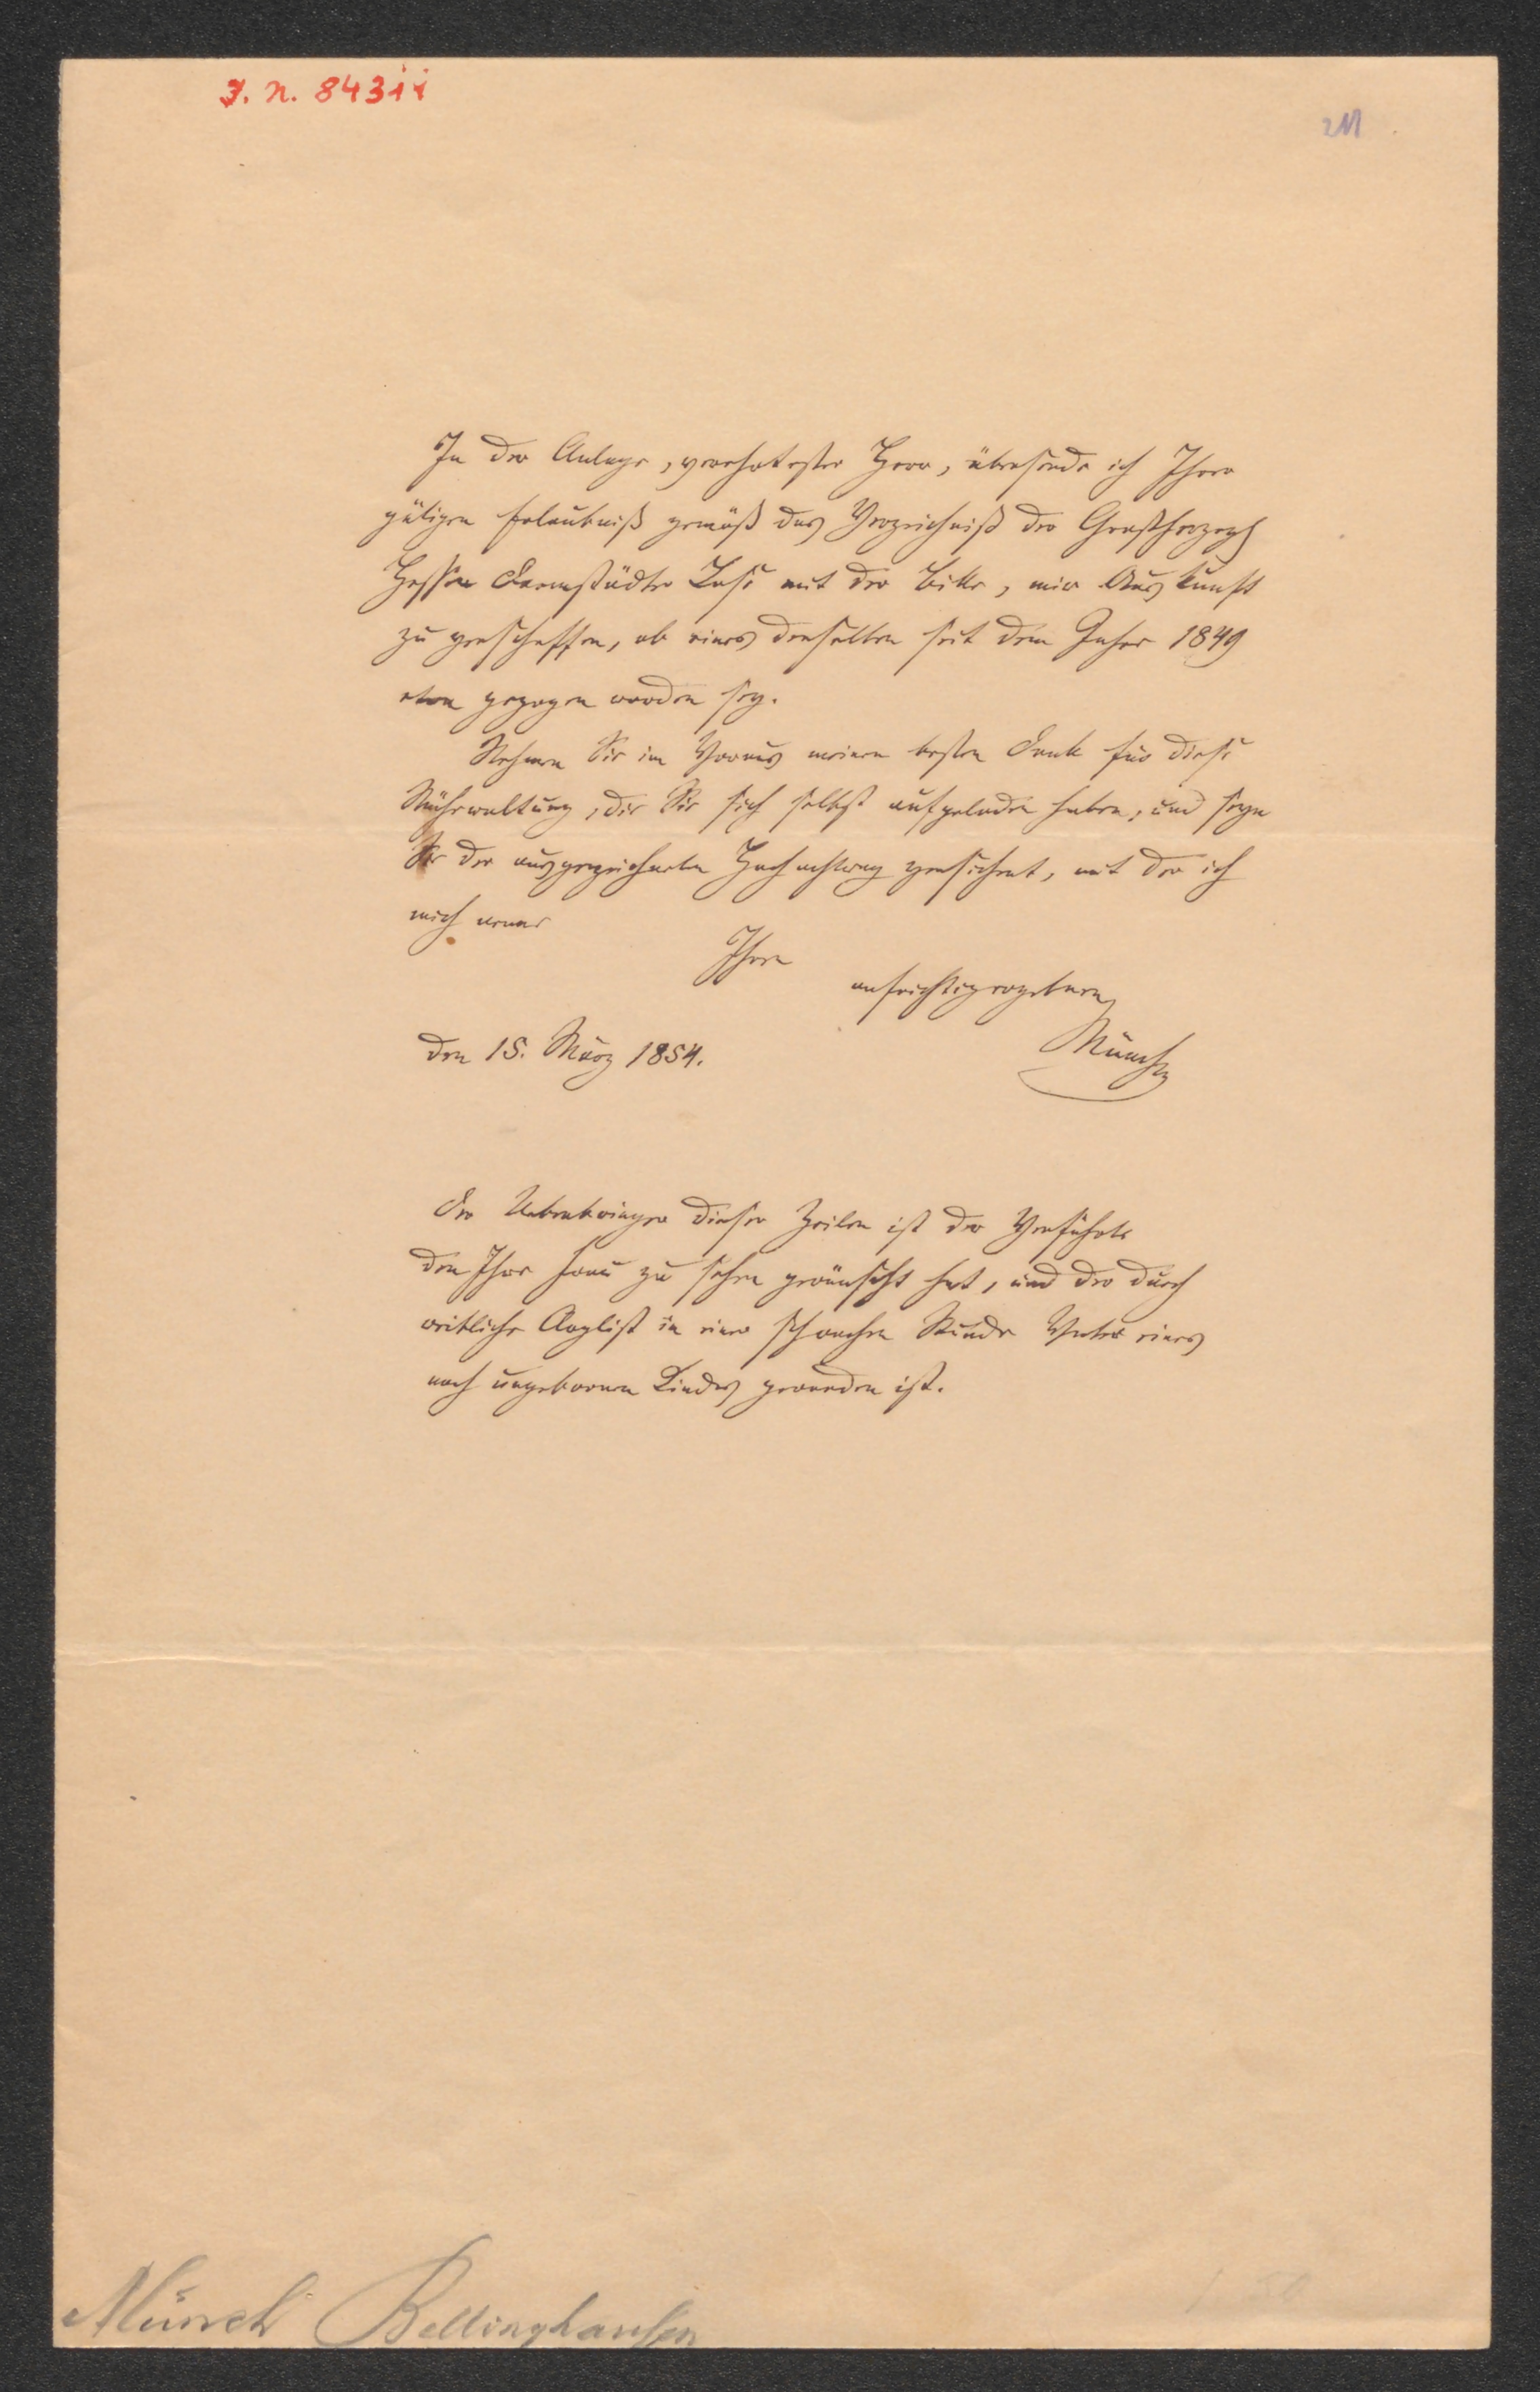 J. N. 84311
211
In der Anlage, verehrtester Herr, übersende ich Ihrer
gütigen Erlaubniß gemäß das Verzeichniß der Großherzogl
Hessen Darmstädter Lose mit der Bitte, mir Auskunft
zu verschaffen, ob eines derselben seit dem Jahre 1849
etwa gezogen worden sey.
Nehmen Sie im Voraus meinen besten Dank für diese
Mühewaltung, die Sie sich selbst aufgeladen haben, und seyn
Sie der ausgezeichneten Hochachtung versichert, mit der ich
mich nenne
Ihren
aufrichtigergebenen
Münch
den 15. März 1854.
Der Ueberbringer dieser Zeilen ist der Verführte
den Ihre Frau zu sehen gewünscht hat, und der durch
weibliche Arglist in einer schwachen Stunde Vater eines
noch ungebornen Kindes geworden ist.
Münch Bellinghausen